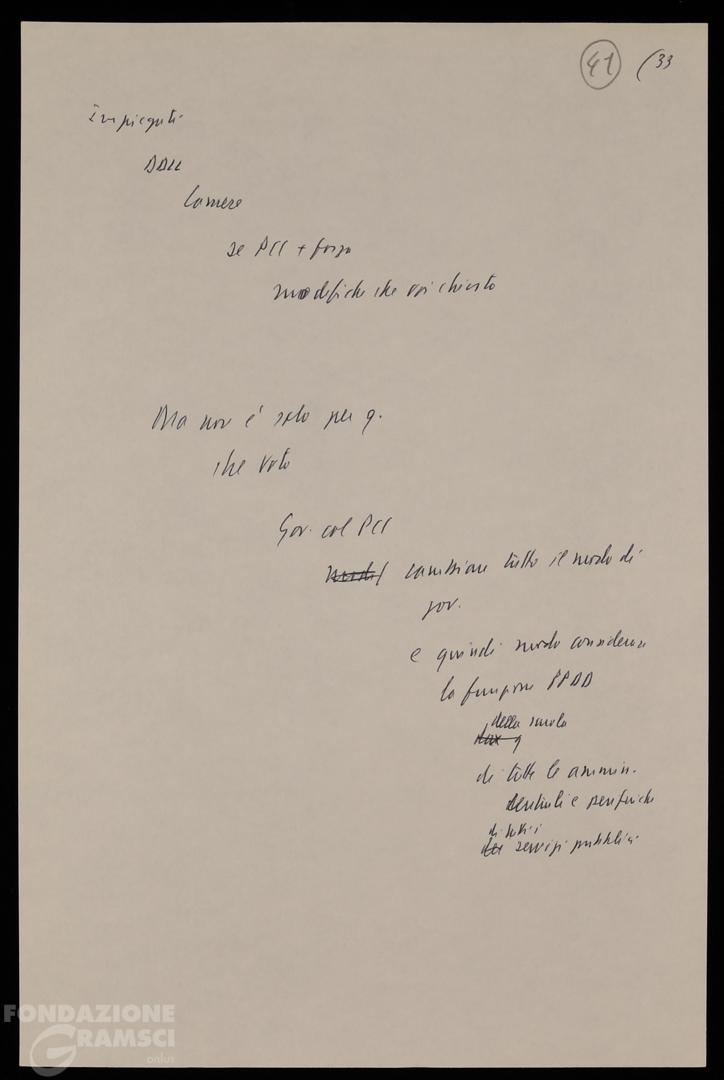 41 (33
Impiegati
DDLL
Camere
se PCI + forza
modifiche che voi chiesto
Ma non è solo per q.
che voto
Gov. col PCI
cambiare tutto il modo di
gov.
e quindi modo considerare
la funzione PPDD
della scuola
di tutte le ammin.
centrali e periferiche
di tutti i
servizi pubblici
FONDAZIONE
GRAMSCI
onlus